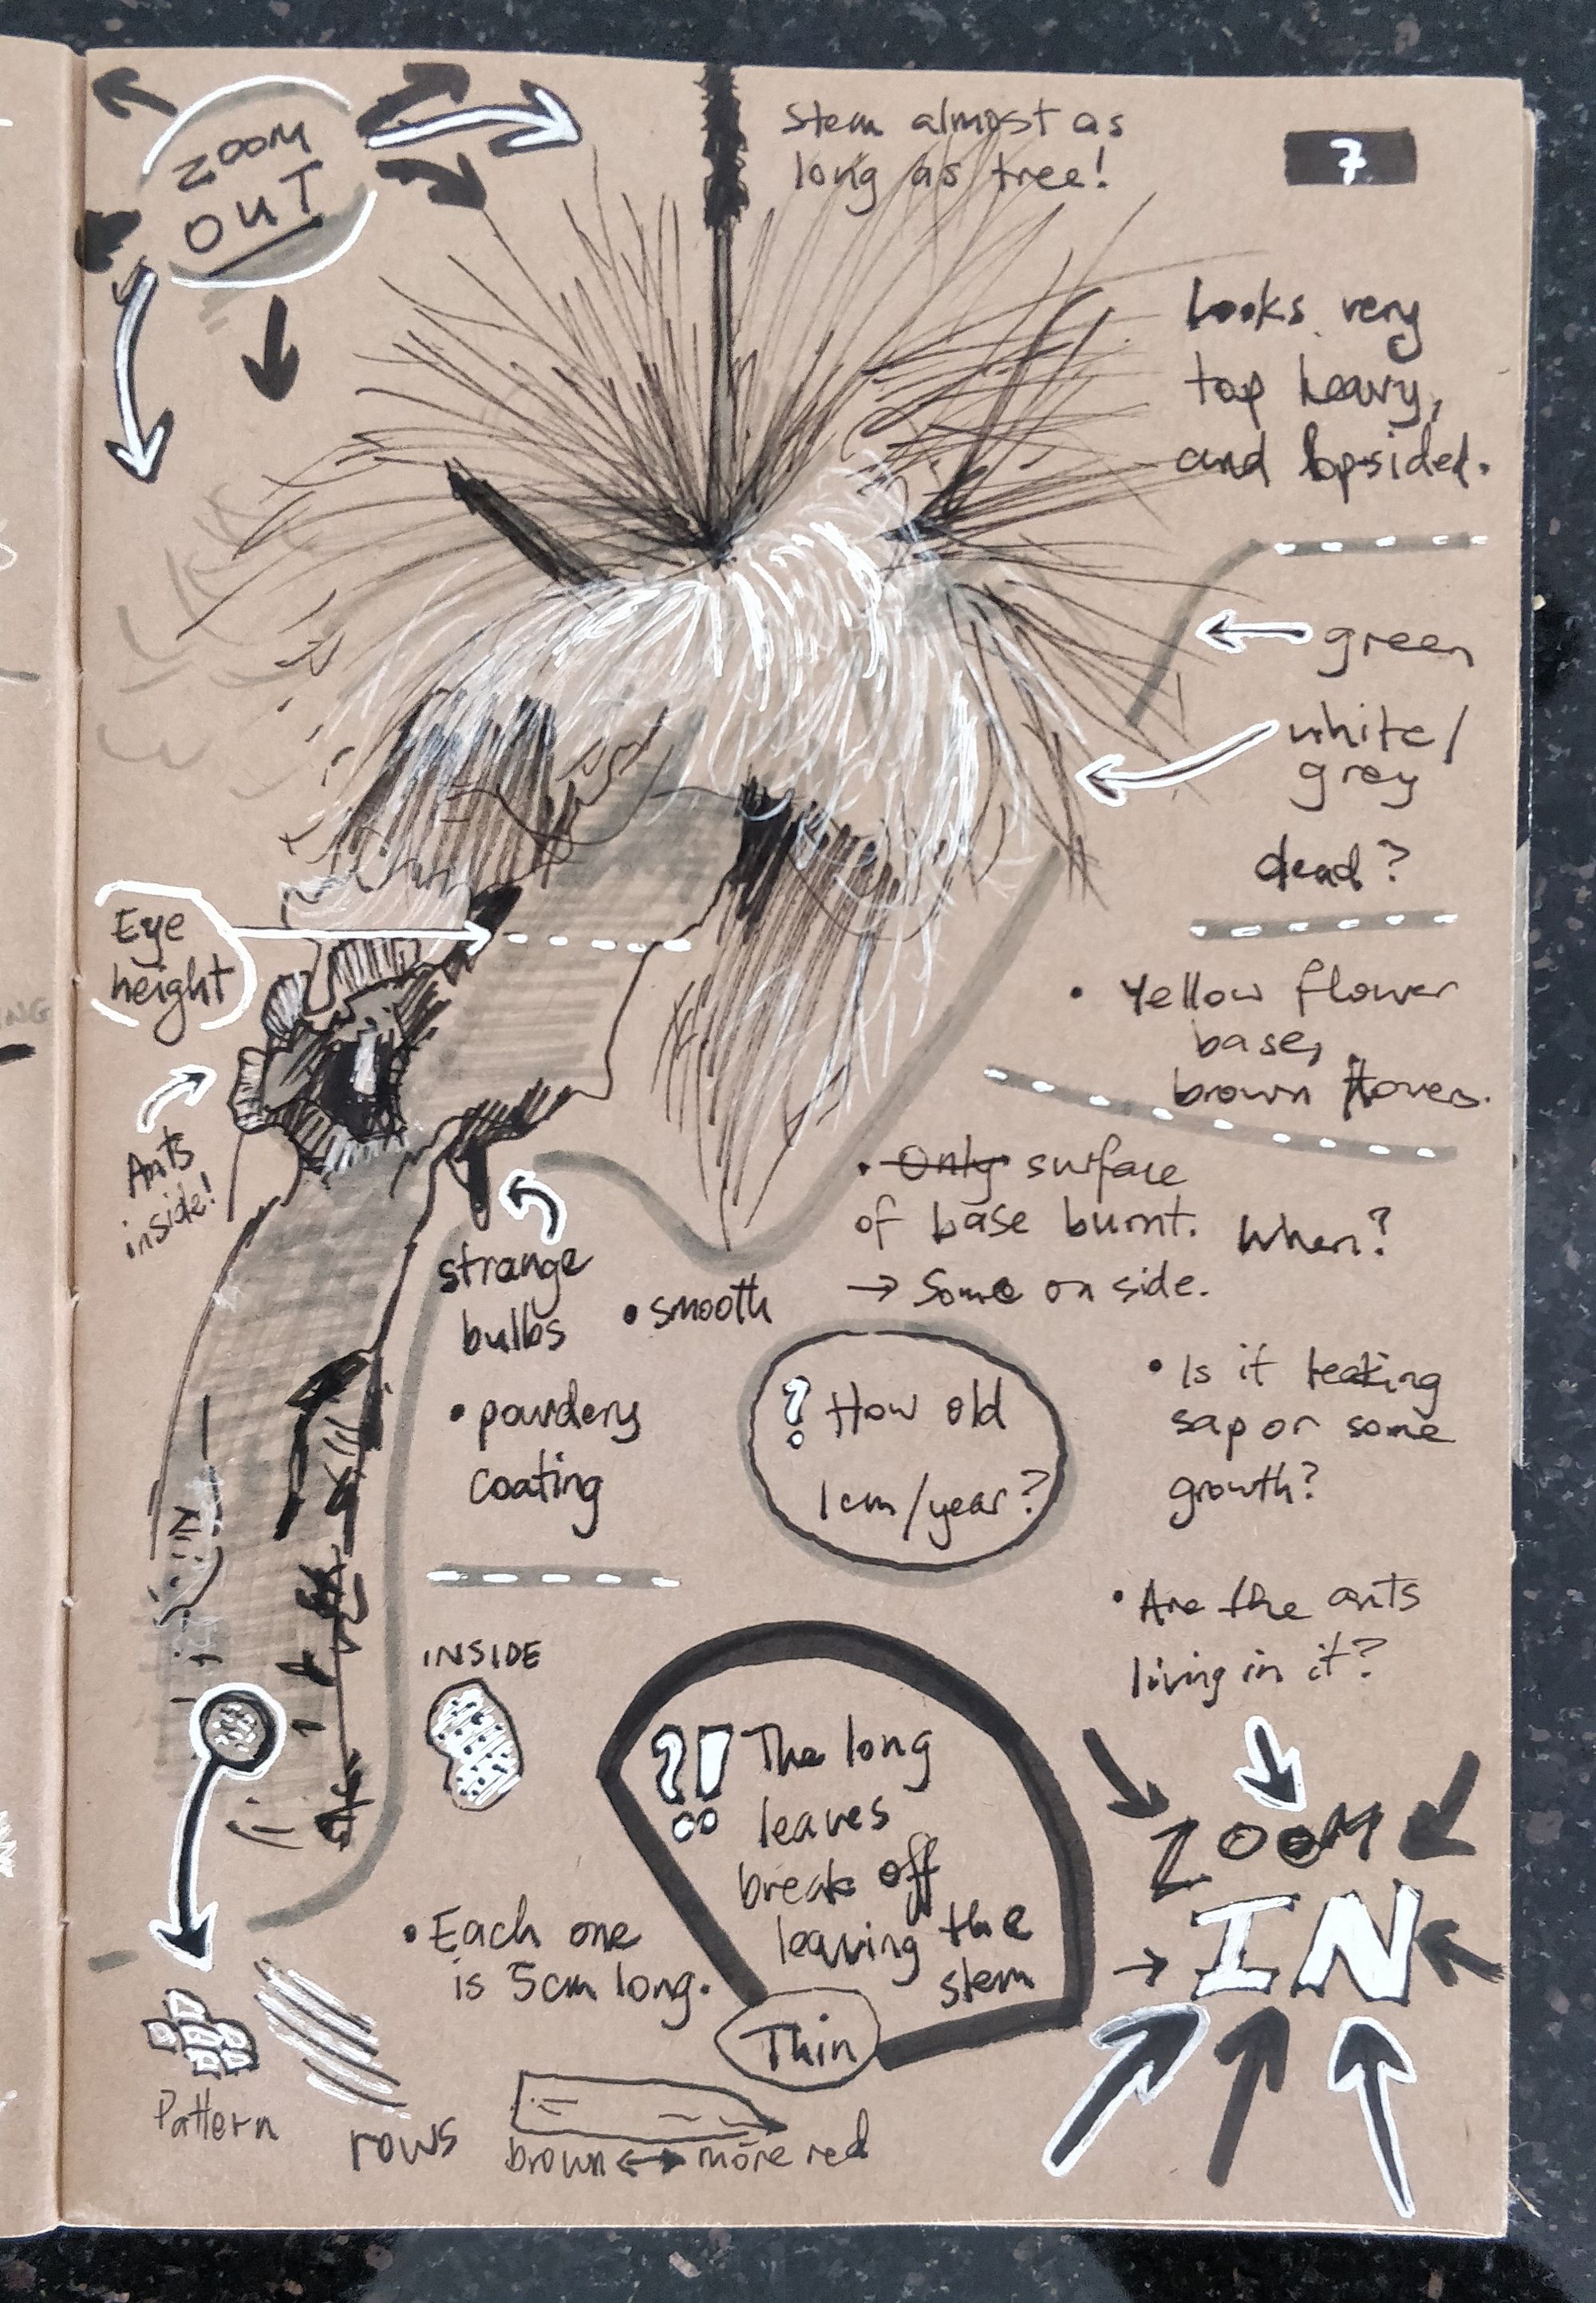 ZOOM
OUT
Stem almost as
long as tree!
7
Looks very
top heavy,
and lopsided.
green
white/
grey
dead?
Eye
height
• Yellow flower
base,
brown flowers.
Ants
inside!
• Only surface
of base burnt. When?
→ Some on side.
strange
bulbs
• smooth
• powdery
coating
? How old
1cm/year?
• Is it leaking
sap or some
growth?
• Are the ants
living in it?
INSIDE
?! The long
leaves
break off
leaving the
stem
Thin
ZOOM
IN
• Each one
is 5cm long.
Pattern
rows
brown ↔ more red